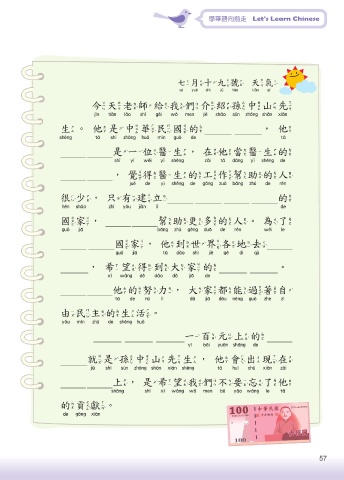 學華語向前走 Let's Learn Chinese
七月十九號 天氣:
今天老師給我們介紹孫中山先
jīn tiān lǎo shī gěi wǒ men jiè shào sūn zhōng shān xiān
生。他是中華民國的______ ______,他
shēng tā shì zhōng huá mín guó de tā
____________是一位醫生,在他當醫生的
shì yí wèi yī shēng zài tā dāng yī shēng de
____________,覺得醫生的工作幫助的人
jué de yī shēng de gōng zuò bāng zhù de rén
很少,只有建立____________的
hěn shǎo zhǐ yǒu jiàn lì de
國家,____________幫助更多的人。為了
guó jiā bāng zhù gèng duō de rén wèi le
____________國家,他到世界各地去______
guó jiā tā dào shì jiè gè dì qù
______,希望得到大家的______ ______。
xī wàng dé dào dà jiā de
____________他的努力,大家都能過著自
tā de nǔ lì dà jiā dōu néng guò zhe zì
由民主的生活。
yóu mín zhǔ de shēng huó
____________一百元上的______
yì bǎi yuán shàng de
______就是孫中山先生,他會出現在
jiù shì sūn zhōng shān xiān shēng tā huì chū xiàn zài
____________上,是希望我們不要忘了他
shàng shì xī wàng wǒ men bú yào wàng le tā
的貢獻。
de gòng xiàn
100 中華民國
100
57